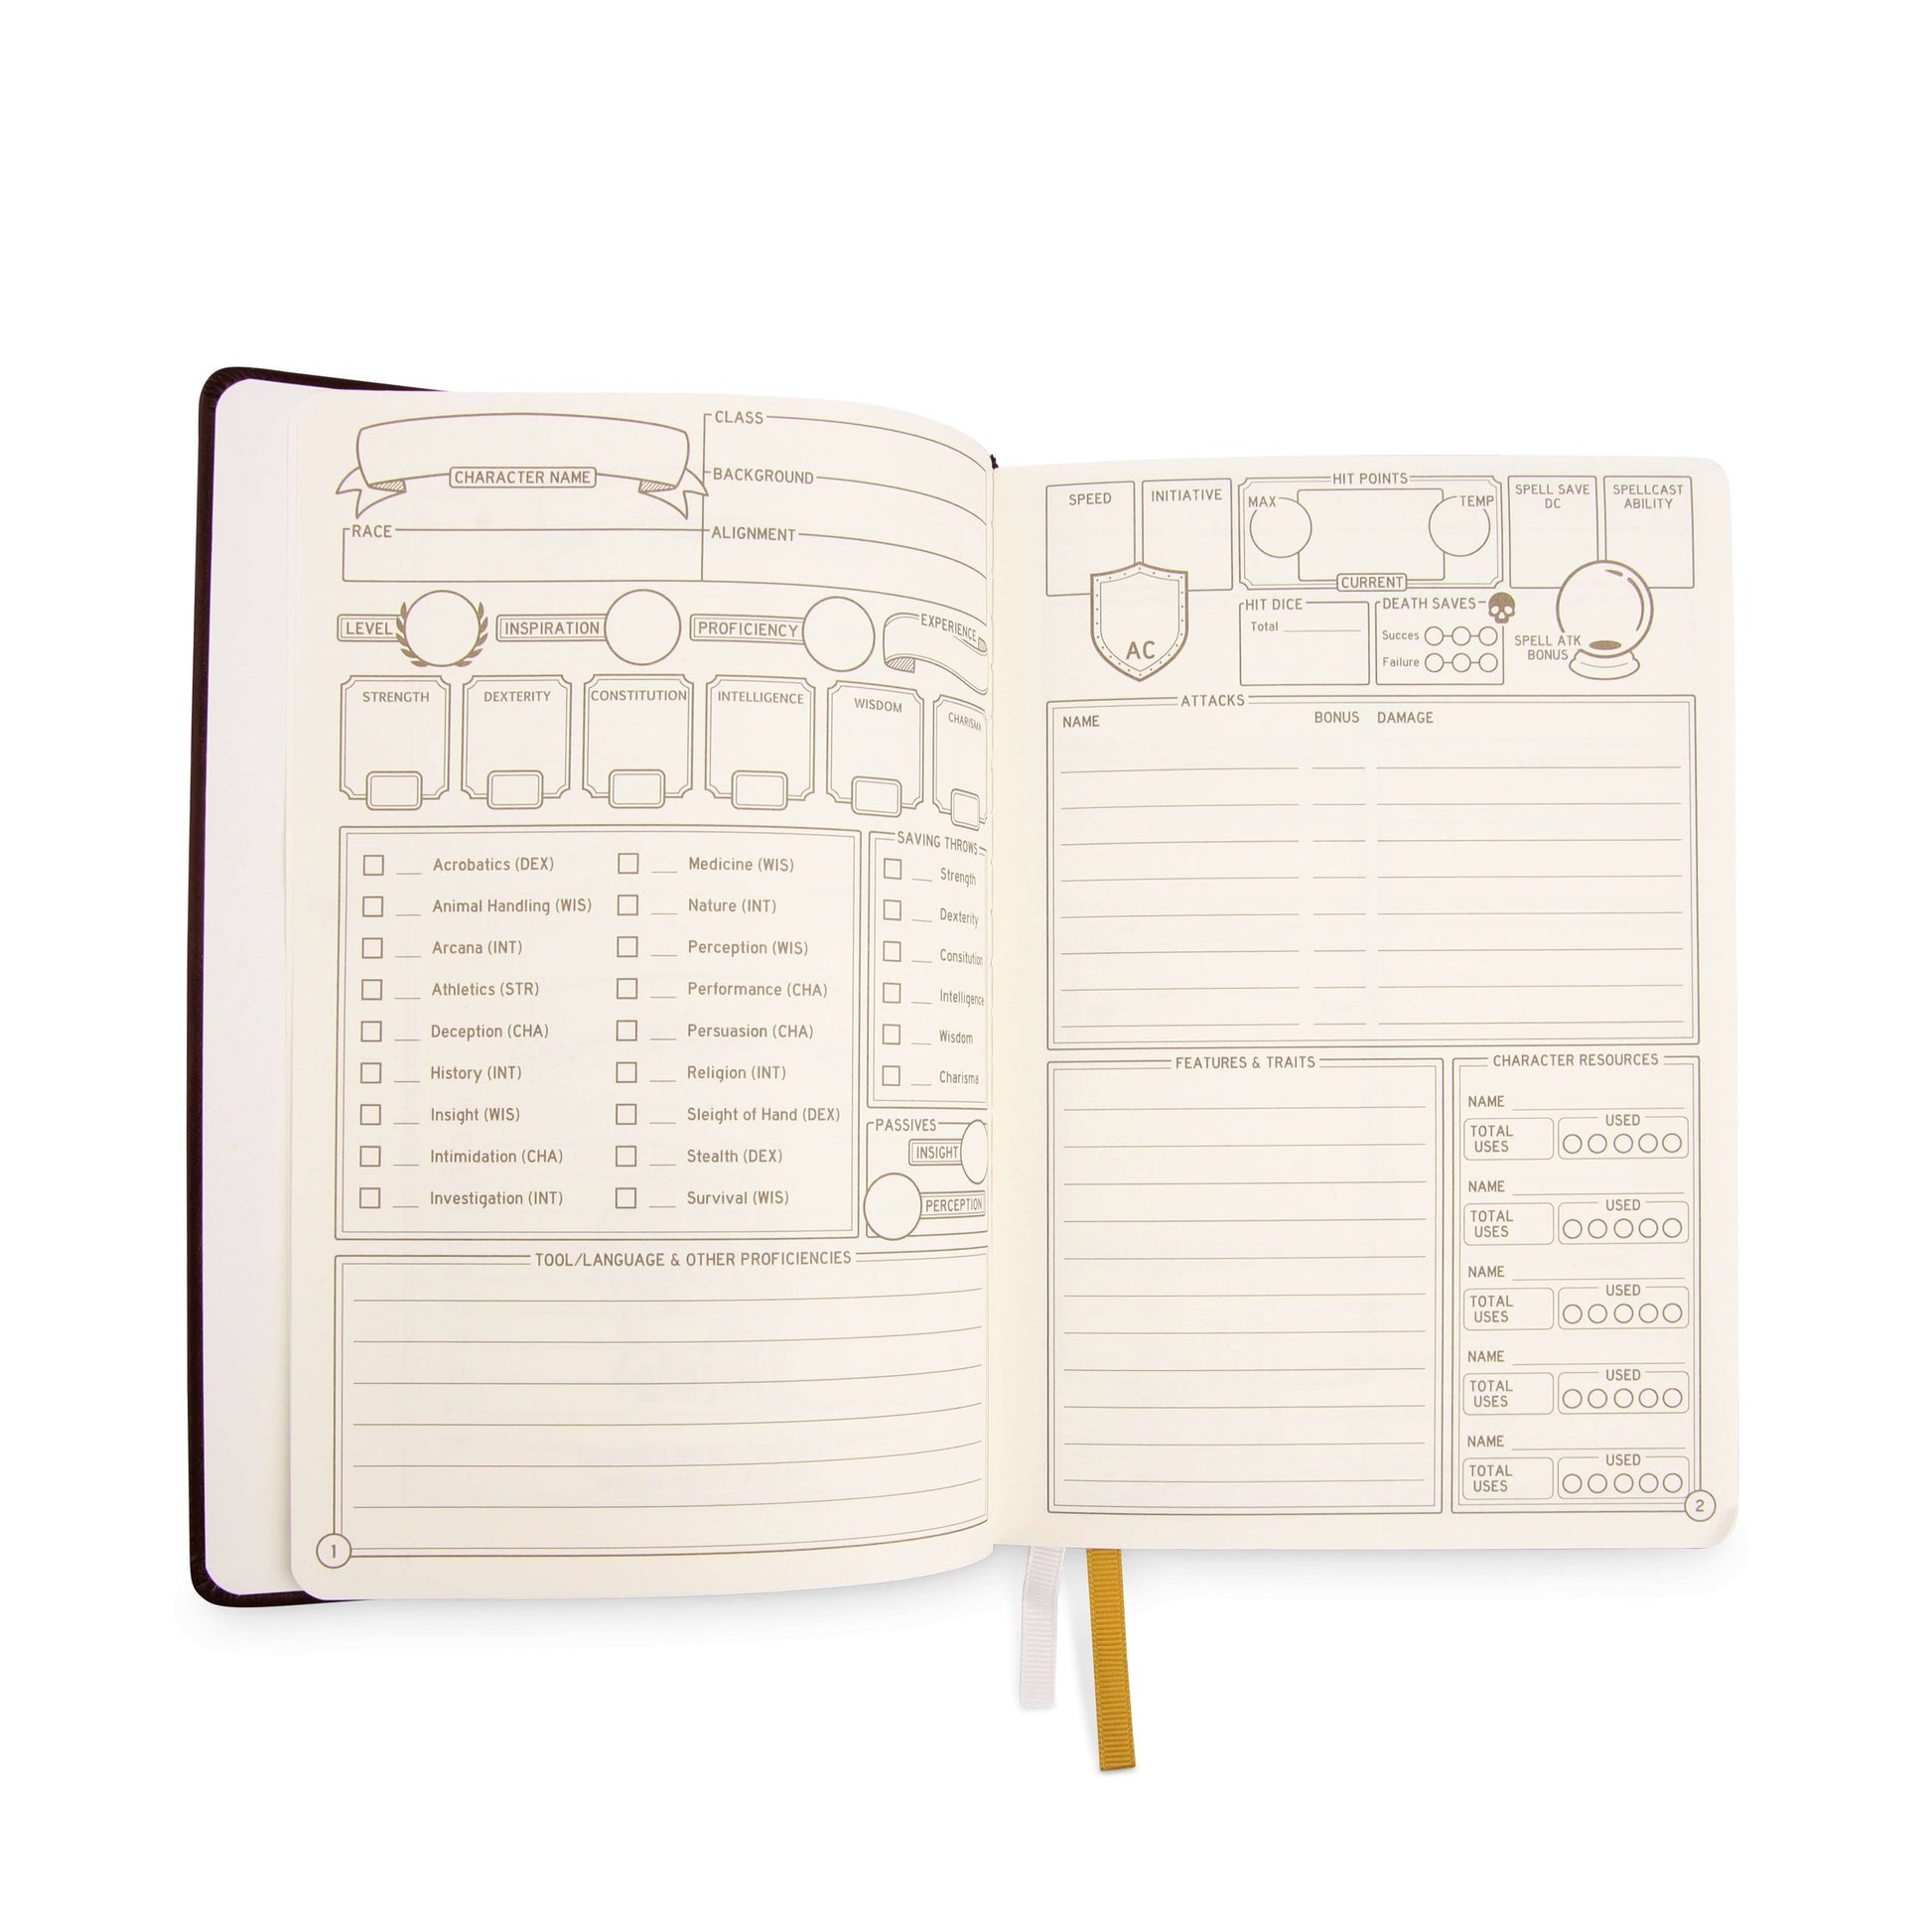 CHARACTER NAME
RACE
CLASS
BACKGROUND
ALIGNMENT
LEVEL
INSPIRATION
PROFICIENCY
EXPERIENCE
STRENGTH
DEXTERITY
CONSTITUTION
INTELLIGENCE
WISDOM
CHARISMA
Acrobatics (DEX)
Animal Handling (WIS)
Arcana (INT)
Athletics (STR)
Deception (CHA)
History (INT)
Insight (WIS)
Intimidation (CHA)
Investigation (INT)
Medicine (WIS)
Nature (INT)
Perception (WIS)
Performance (CHA)
Persuasion (CHA)
Religion (INT)
Sleight of Hand (DEX)
Stealth (DEX)
Survival (WIS)
SAVING THROWS
Strength
Dexterity
Consitution
Intelligence
Wisdom
Charisma
PASSIVES
INSIGHT
PERCEPTION
TOOL/LANGUAGE & OTHER PROFICIENCIES
1
SPEED
INITIATIVE
AC
HIT POINTS
MAX
TEMP
CURRENT
HIT DICE
Total
DEATH SAVES
Succes
Failure
SPELL SAVE
DC
SPELLCAST
ABILITY
SPELL ATK
BONUS
ATTACKS
NAME BONUS DAMAGE
FEATURES & TRAITS
CHARACTER RESOURCES
NAME
TOTAL
USES
USED
NAME
TOTAL
USES
USED
NAME
TOTAL
USES
USED
NAME
TOTAL
USES
USED
NAME
TOTAL
USES
USED
2